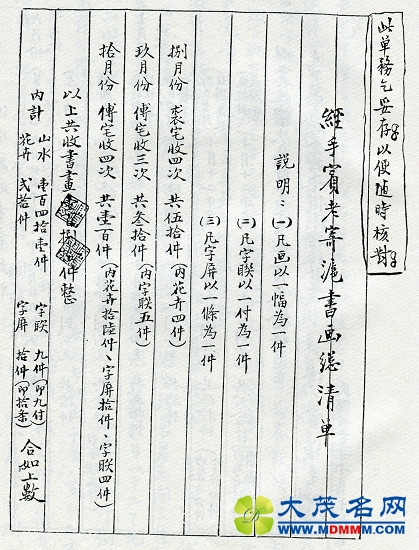 此单務乞妥存以便隨時核對
經手賓老寄滬書画總清单
說明：(一)凡画以一幅為一件
(二)凡字联以一付為一件
(三)凡字屏以一條為一件
捌月份 裘宅收四次 共伍拾件(内花卉四件)
玖月份 傅宅收三次 共叁拾件(内字联五件)
拾月份 傅宅收四次 共壹百件(内花卉拾陸件、字屏拾件、字联四件)
以上共收書畫捌拾件整
内計 山水 壹百四拾壹件 字联 九件(即九付)
花卉 弍拾件 字屏 拾件(即拾条) 合如上數
大茂名网
WWW.MDMMM.COM